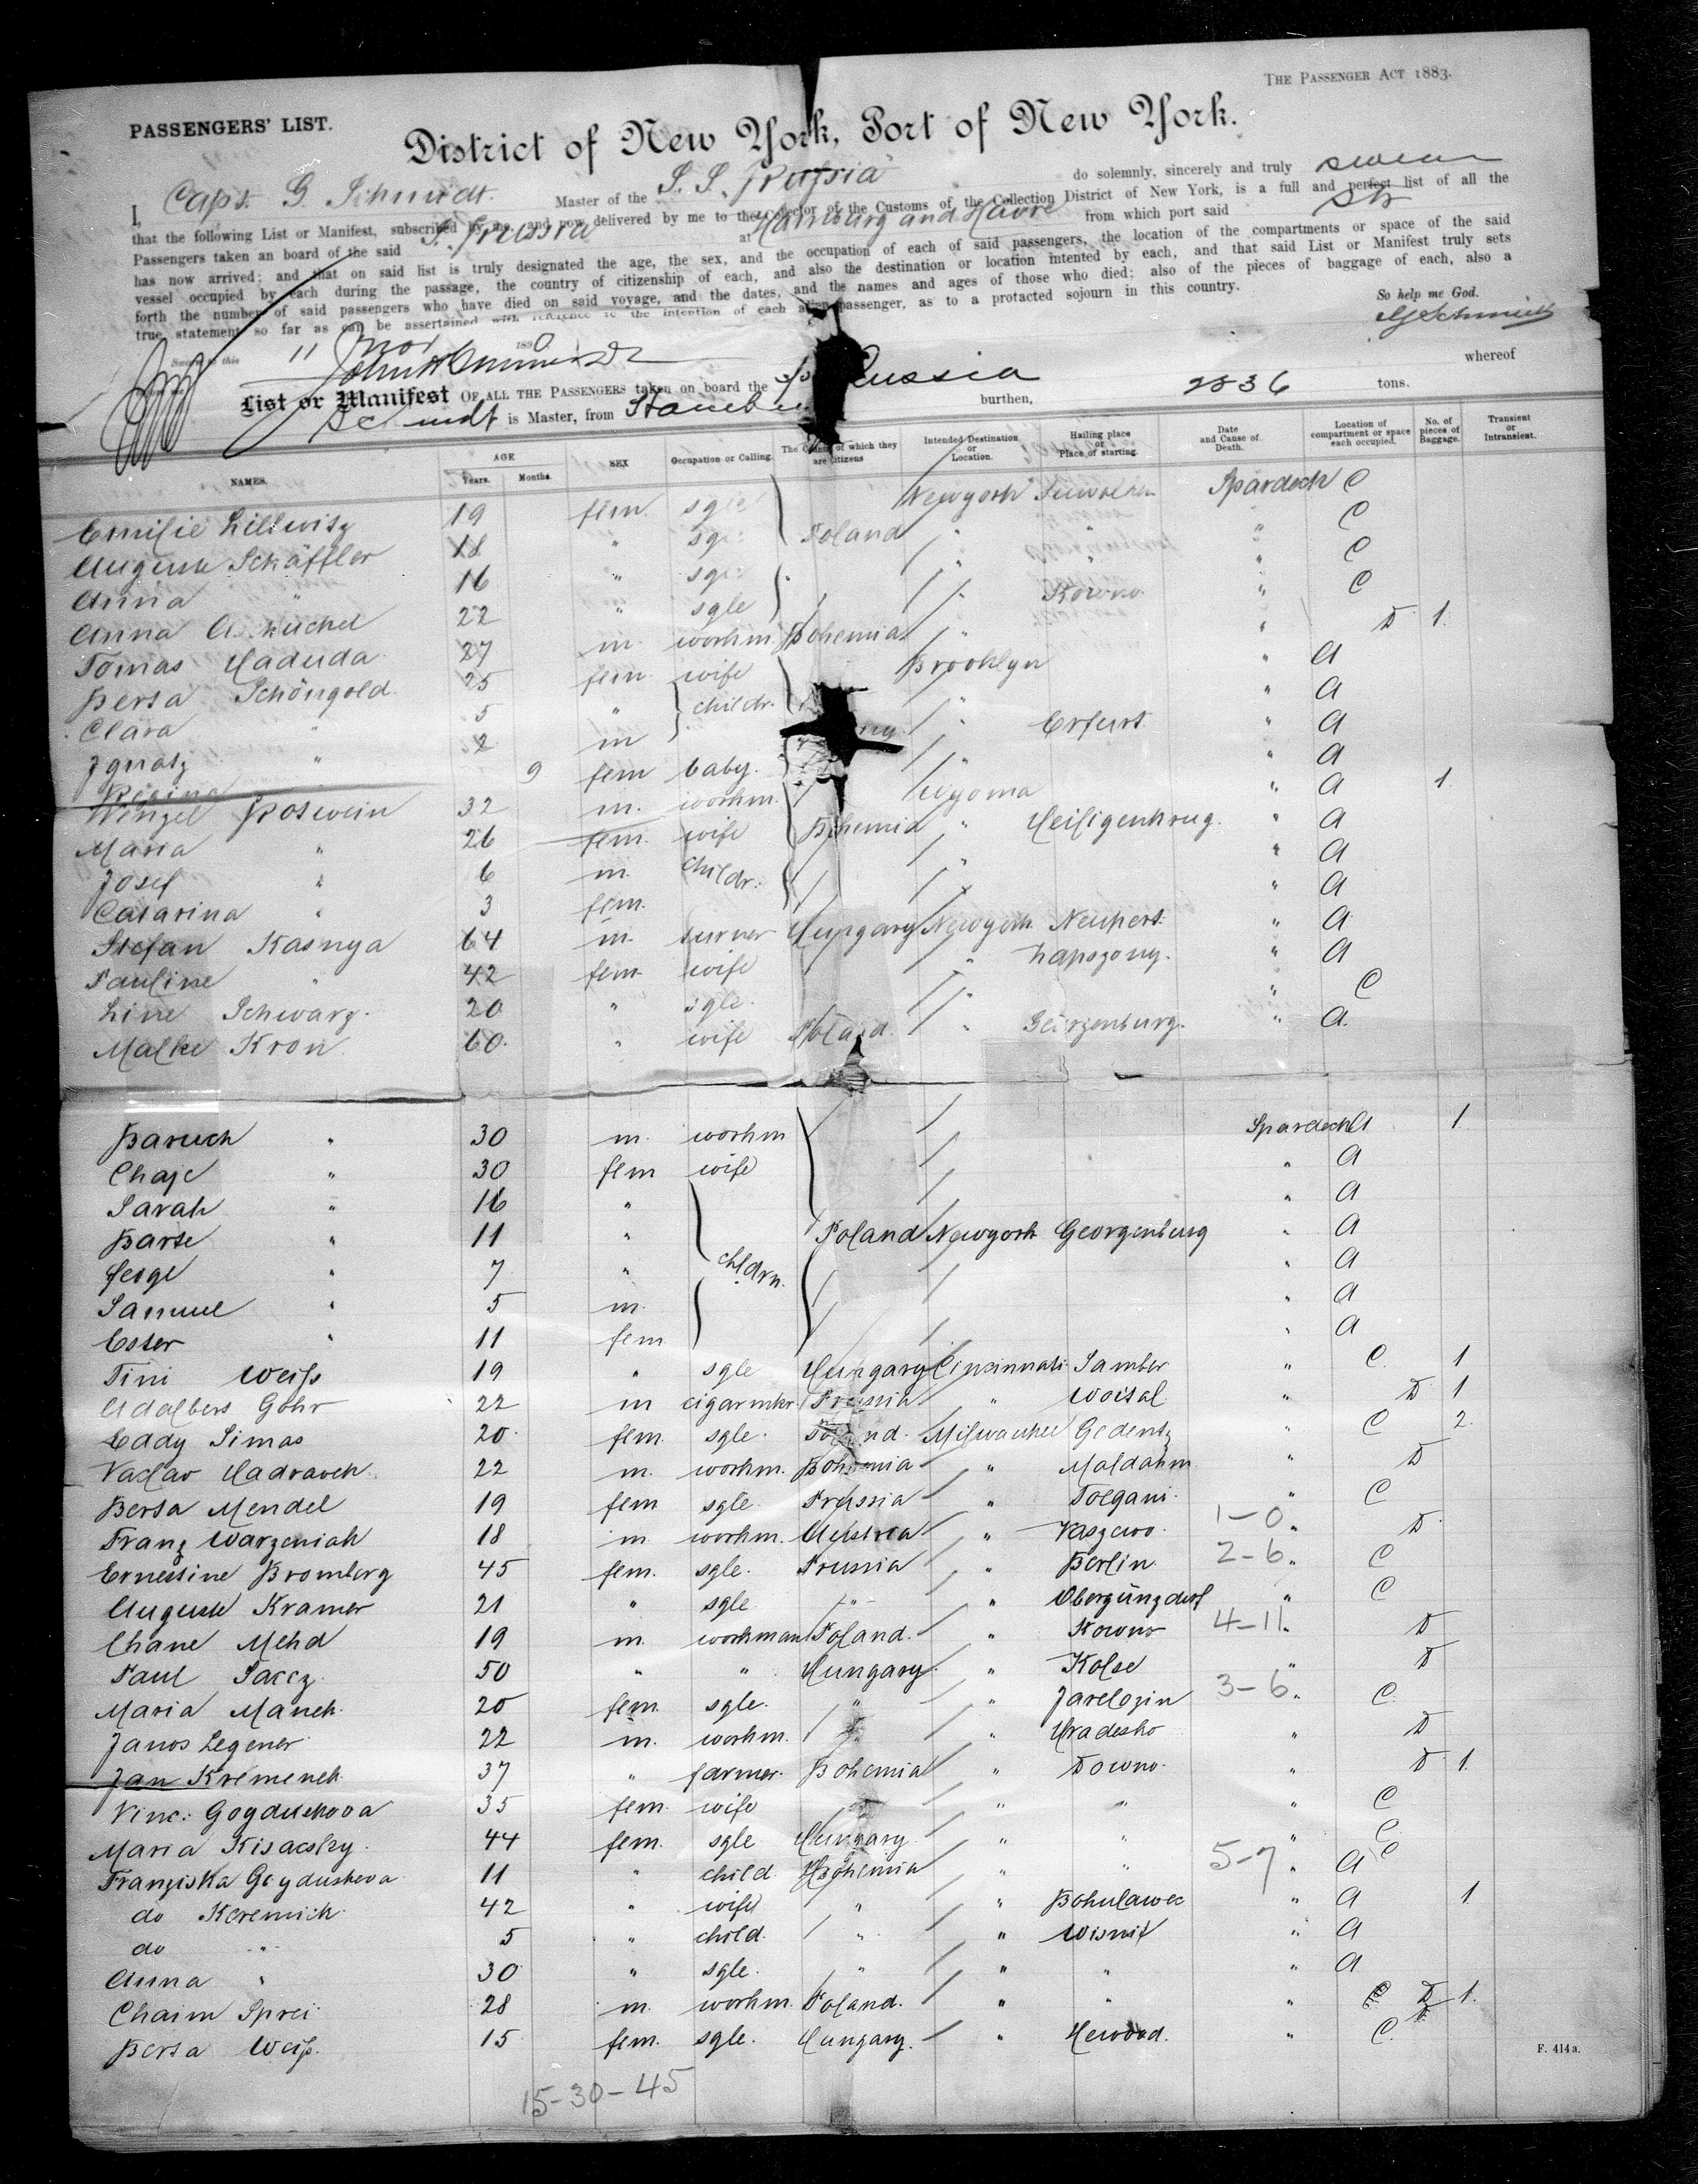 THE PASSENGER ACT 1883.
PASSENGERS' LIST.
District of New York, Port of New York.
I, Capt. G Schmidt. Master of the S. S. Prussia do solemnly, sincerely and truly swear
that the following List or Manifest, subscribed by me, and now delivered by me to the Collector of the Customs of the Collection District of New York, is a full and perfect list of all the
Passengers taken an board of the said S. Prussia at Hamburg and Havre from which port said Str
has now arrived; and that on said list is truly designated the age, the sex, and the occupation of each of said passengers, the location of the compartments or space of the said
vessel occupied by each during the passage, the country of citizenship of each, and also the destination or location intented by each, and that said List or Manifest truly sets
forth the number of said passengers who have died on said voyage, and the dates, and the names and ages of those who died; also of the pieces of baggage of each, also a
true statement so far as can be assertained with reference to the intention of each alien passenger, as to a protacted sojourn in this country.
So help me God.
G Schmidt
Sworn to this 11 Nov 1890
List or Manifest OF ALL THE PASSENGERS taken on board the S/S Prussia burthen, 2836 tons. whereof
Schmidt is Master, from Hamburg
NAMES. AGE Years. Months. SEX Occupation or Calling. The Country of which they are Citizens Intended Destination or Location. Hailing place or Place of starting. Date and Cause of Death. Location of compartment or space each occupied. No. of pieces of Baggage. Transient or Intransient.
Emilie 19 fem sgle Newyork Suwalken Spardeck C
Auguste Schäffler 18 " sgle Poland " " " C
Anna " 16 " sgle " " C
Anna 22 " sgle " Kowno " C
Tomas Haduda 27 m. workm. Bohemia " " D 1.
Berta Schöngold 25 fem. wife Brooklyn " A
Clara " 5 " childr. " " A
Ignatz " 2 m " Erfurt " A
Regina 9 fem baby. " " A
Wenzel Poswein 32 m. workm. Wyoma " A 1
Maria " 26 fem. wife Bohemia " Heiligenkrug. " A
Josef " 6 m. childr. " " A
Catarina " 3 fem. " " A
Stefan Kasnya 64 m. turner Hungary Newyork Neupest " A
Pauline " 42 fem wife " Zapszony. " A
Line Schwarz. 20 " sgle. " " C
Malke Kron 60. " wife Poland. " Görgenburg. " A.
Baruch " 30 m. workm Spardeck A 1
Chaje " 30 fem wife " A
Sarah " 16 " " A
Barse " 11 " Poland Newyork Georgenburg " A
Feige " 7 " childrn. " A
Samuel " 5 m. " A
Ester " 11 fem " A
Tini Weiss 19 " sgle Hungary Cincinnati Sambor " C. 1
Adalbert Gohr 22 m cigarmkr. Prussia " Woital " D 1
Eddy Simas 20. fem. sgle. Poland. Milwaukee Gedentz " C 2.
Vaclav Hadravek 22 m. workm. Bohemia " Moldahm " D
Berta Mendel 19 fem sgle Prussia " Toegani. " C
Franz Warzeniak 18 m workm. Austria " Naszewo. 1-0 " D
Ernestine Bromberg 45 fem. sgle. Prussia " Berlin 2-6 " C
Auguste Kramer 21 " sgle " " Obergünzdorf " C
Chane Mehd 19 m. workman Poland. " Kowno 4-11 " D
Paul 50 " " Hungary. " Kolse " D
Maria Manek. 20 fem. sgle. " " Jarelozin 3-6 " C.
Janos Legener 22 m. workm. " " Hradesko " D
Jan Kremenek 37 " farmer. Bohemia " Downo. " D 1.
Vinc: Goyduskova 35 fem. wife " " " " C
Maria Kisacsky. 44 fem. sgle Hungary. " " " C
Franziska Goyduskova 11 " child Bohemia " " 5-7 " A C
do Keremich. 42 " wife " " Bohulawec " A 1
do " 5 " child. " " Wisnit " A
Anna " 30 " sgle. " " " " A
Chaim Sprei 28 m. workm. Poland. " " " C D 1.
D
Berta Weiss. 15 fem. sgle. Hungary. " Hewood. " C.
F. 414 a.
15-30-45